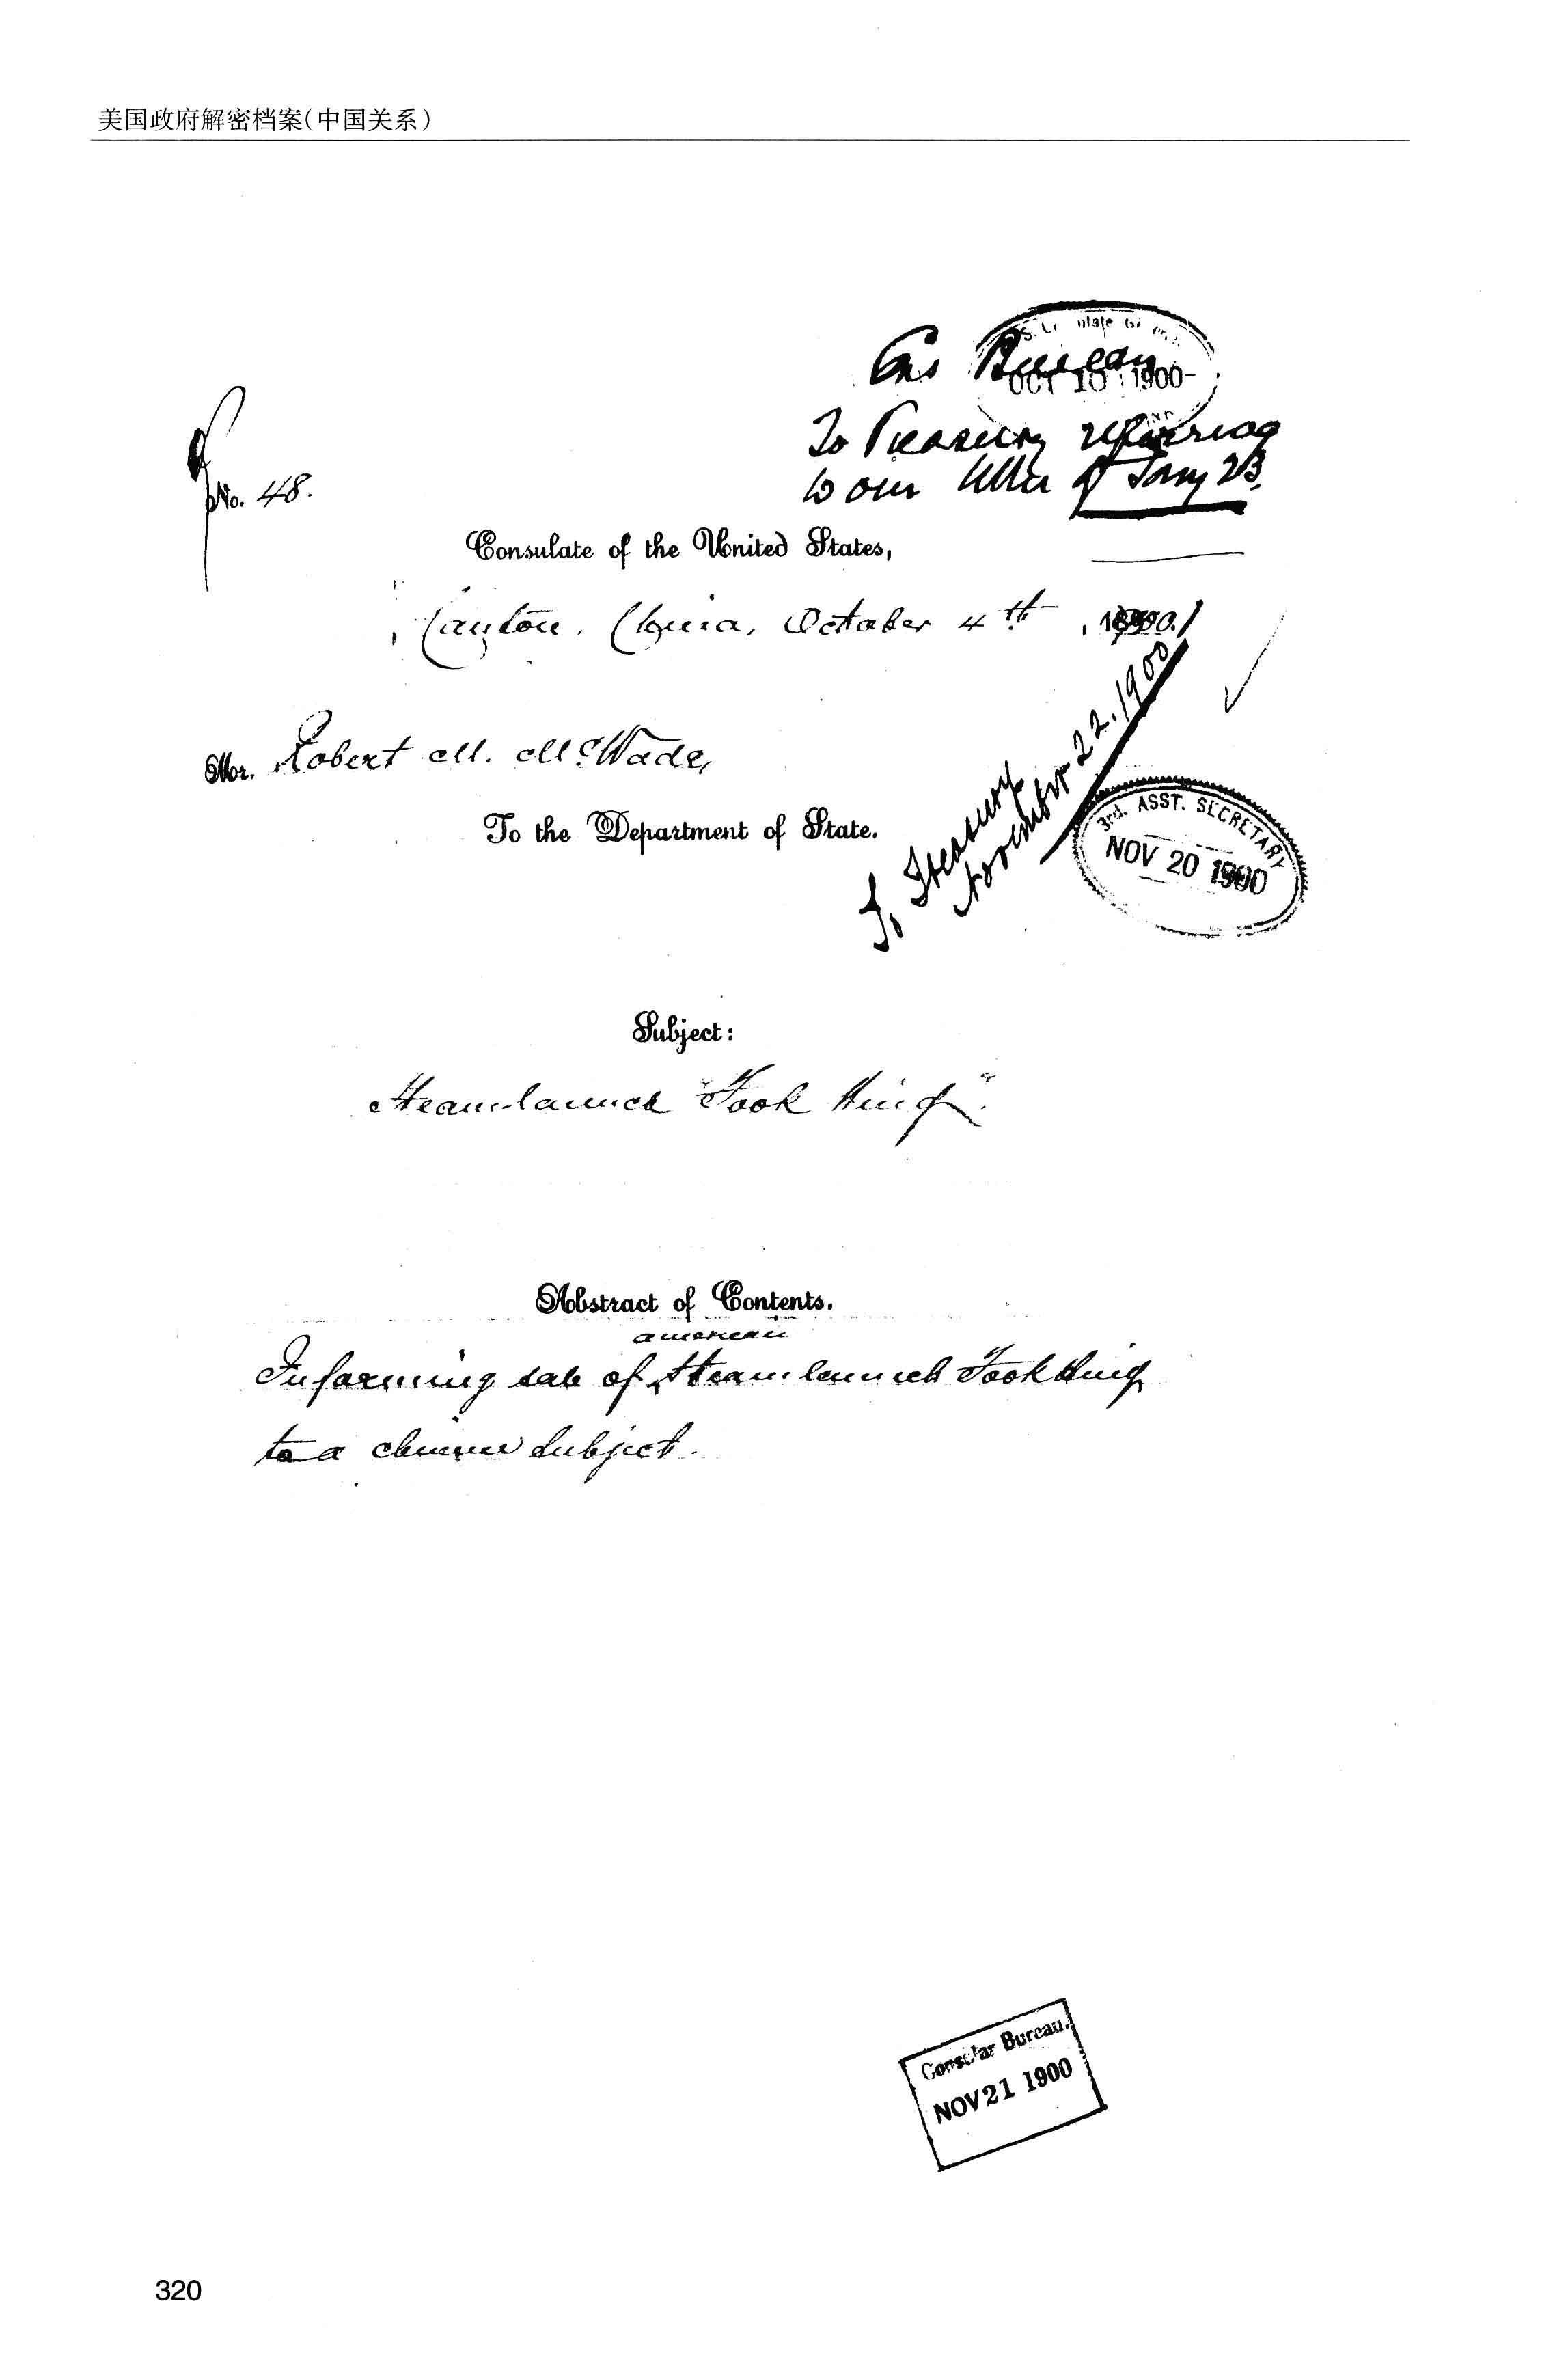 美国政府解密档案(中国关系)
Cons Bureau
OCT 10 1900
To Treasury referring
to our letter of Jany 23.
No. 48.
Consulate of the United States,
Canton, China, October 4th, 1900.
Mr. Robert M. McWade,
To the Department of State.
To Treasury
November 22. 1900
3rd. ASST. SECRETARY
NOV 20 1900
Subject:
Steamlaunch "Fook Hing".
Abstract of Contents.
american
Informing sale of steamlaunch Fook Hing
to a chinese subject.
Consular Bureau.
NOV 21 1900
320